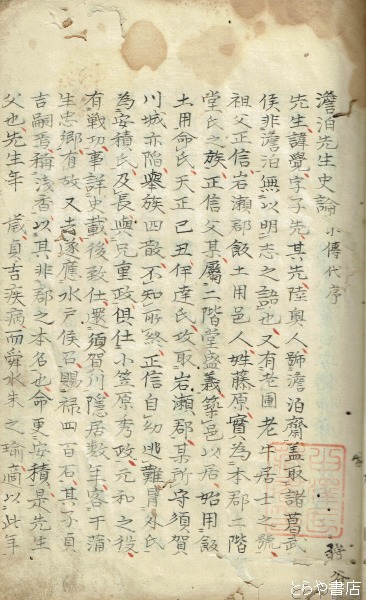 澹泊先生史論 小傳代序
先生諱覺字子先其先陸奧人號澹泊齋蓋取諸葛武
侯非澹泊無以明志之語也又有老圃老牛居士之號
祖父正信岩瀬郡飯土用邑人姓藤原實為本郡二階
堂氏之族正信父某屬二階堂盛義築邑以居始用飯
土用命氏天正己丑伊達氏攻取岩瀬郡其所守須賀
川城亦陷舉族四散不知所終正信自幼逃難冒外氏
為安積氏及長與兄重政俱仕小笠原秀政元和之役
有戰功事詳史載後致仕還須賀川隱居數年客于蒲
生忠鄉有故又去遂應水戶侯召賜祿四百石其子貞
吉嗣晋稱淺香以其非郡之本名也命更安積是先生
父也先生年 歲貞吉疾病而舜水朱之瑜適以此年
とらや書店